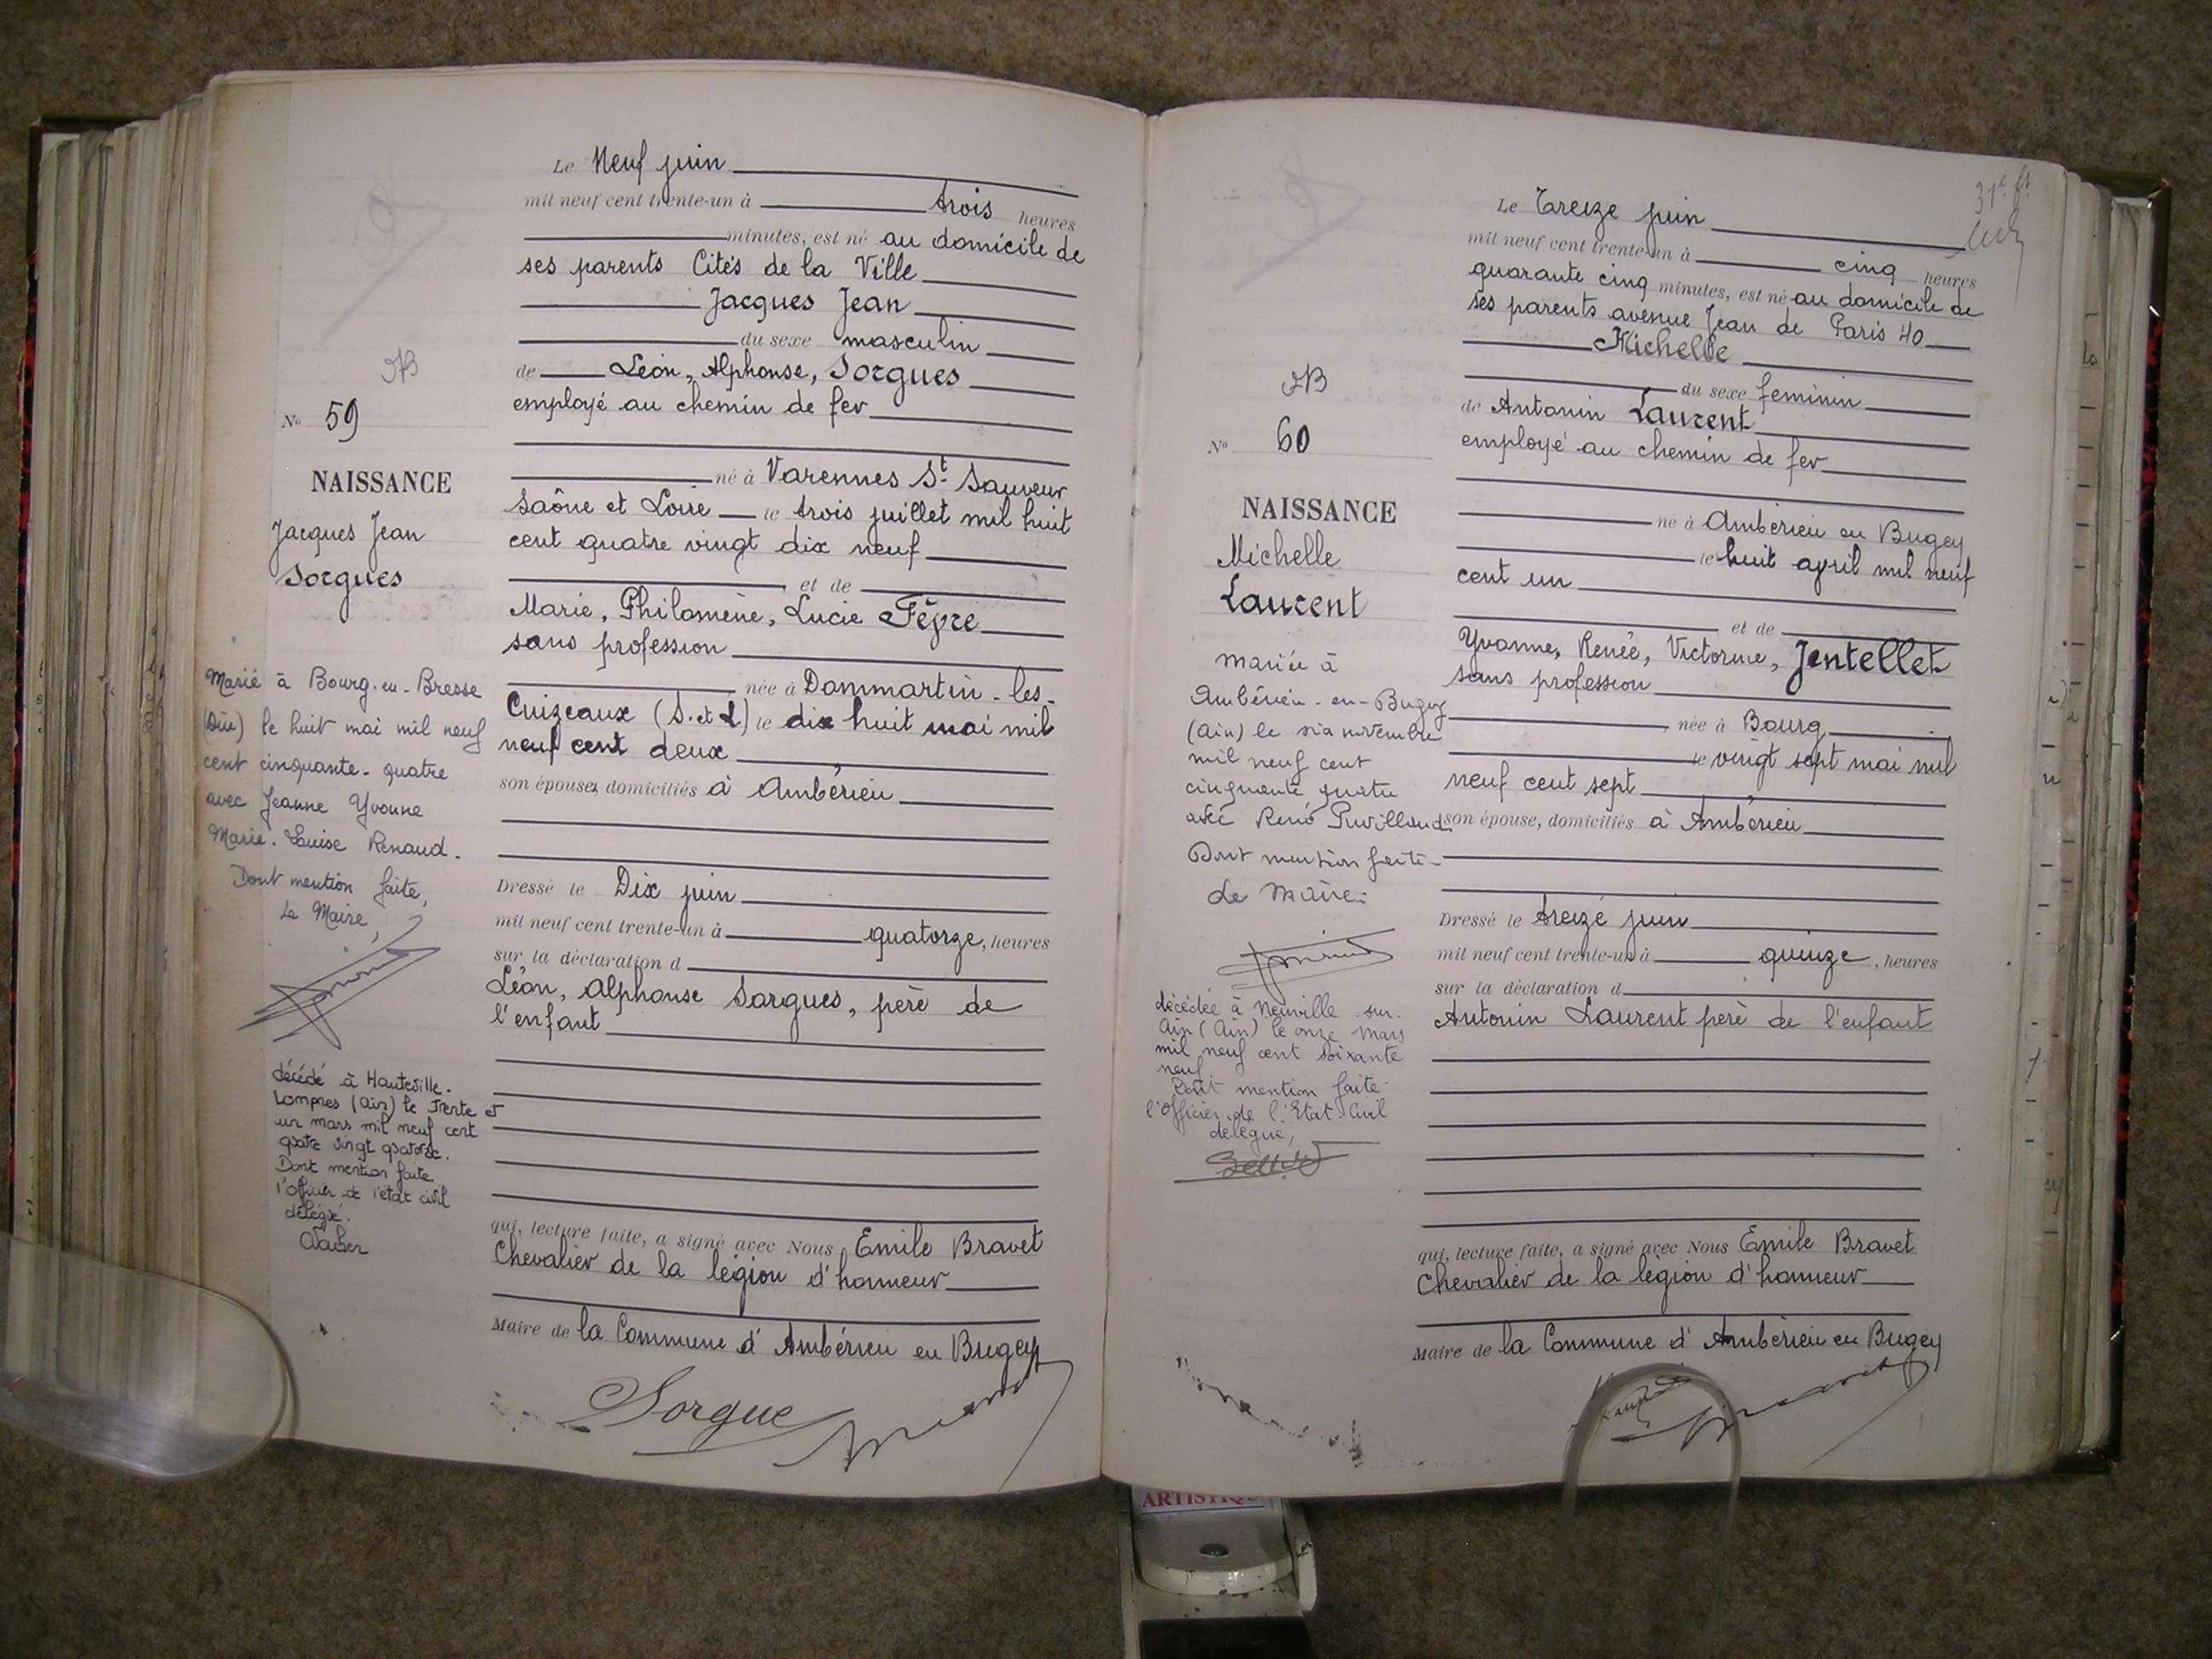 Le Neuf juin
mil neuf cent trente-un à trois heures
minutes, est né au domicile de
ses parents Cités de la Ville
Jacques Jean
du sexe masculin
de Léon, Alphonse, Sorgues
employé au chemin de fer
né à Varennes St Sauveur
Saône et Loire le trois juillet mil huit
cent quatre vingt dix neuf
et de
Marie, Philomène, Lucie Fèvre
sans profession
née à Dommartin-les-
Cuizeaux (S. et L) le dix huit mai mil
neuf cent deux
son épouse, domiciliés à Ambérieu
Dressé le Dix juin
mil neuf cent trente-un à quatorze, heures
sur la déclaration d
Léon, Alphonse Sorgues, père de
l'enfant
qui, lecture faite, a signé avec Nous Emile Bravet
Chevalier de la légion d'honneur
Maire de la Commune d'Ambérieu en Bugey
Sorgue
No 59
NAISSANCE
Jacques Jean
Sorgues
Marié à Bourg-en-Bresse
(Ain) le huit mai mil neuf
cent cinquante-quatre
avec Jeanne Yvonne
Marie-Louise Renaud.
Dont mention faite,
Le Maire,
décédé à Hauteville-
Lompnes (Ain) le trente et
un mars mil neuf cent
quatre vingt quatorze.
Dont mention faite
l'officier de l'état civil
délégué.
Le Treize juin
mil neuf cent trente-un à cinq heures
quarante cinq minutes, est né au domicile de
ses parents avenue Jean de Paris 40
Michelle
du sexe feminin
de Antonin Laurent
employé au chemin de fer
né à Ambérieu en Bugey
le huit avril mil neuf
cent un
et de
Yvonne, Renée, Victorine, Jentellet
sans profession
née à Bourg
le vingt sept mai mil
neuf cent sept
son épouse, domiciliés à Ambérieu
Dressé le treize juin
mil neuf cent trente-un à quinze, heures
sur la déclaration d
Antonin Laurent père de l'enfant
qui, lecture faite, a signé avec Nous Emile Bravet
Chevalier de la légion d'honneur
Maire de la Commune d'Ambérieu en Bugey
No 60
NAISSANCE
Michelle
Laurent
mariée à
Ambérieu-en-Bugey
(Ain) le six novembre
mil neuf cent
cinquante quatre
avec René
Dont mention faite-
Le Maire:
décédée à Neuville-sur-
Ain (Ain) le onze mars
mil neuf cent soixante
neuf
Dont mention faite-
l'Officier de l'Etat-Civil
délégué,
ARTISTIQU